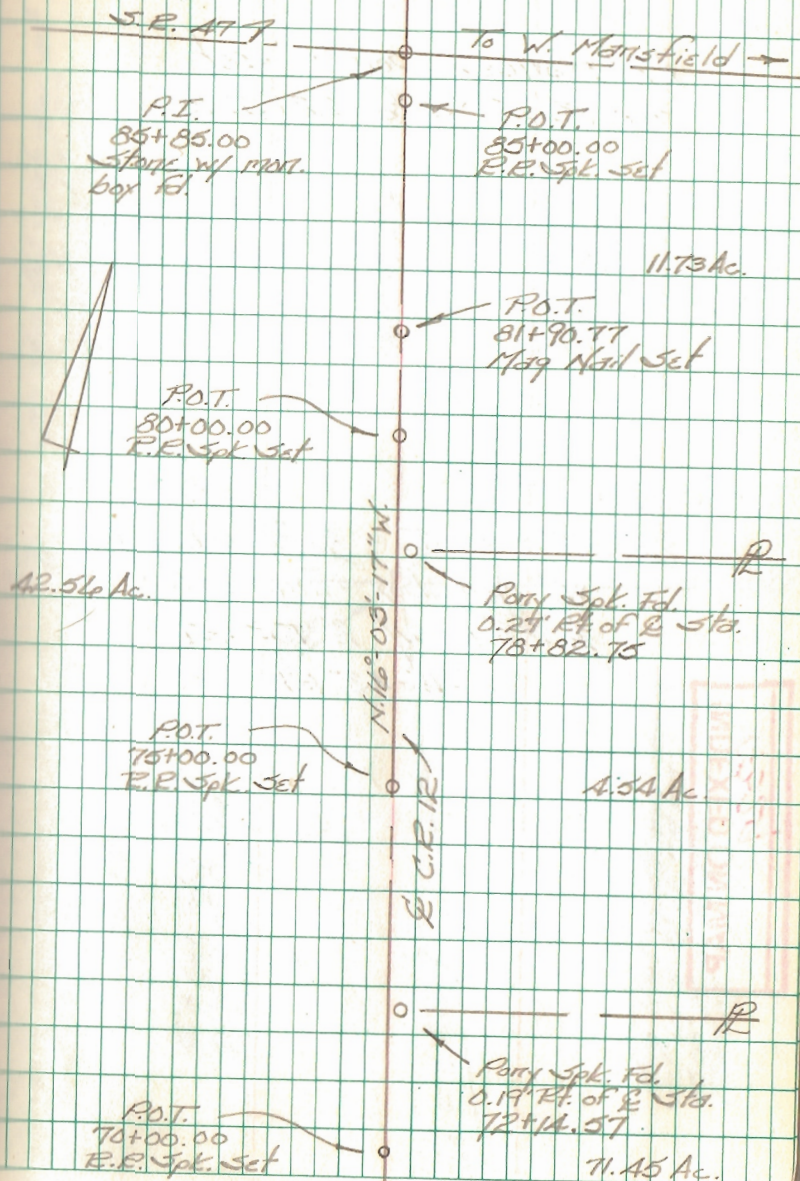 S.R. 47
To W. Mansfield
P.I.
85+85.00
Stone w/ mon.
box fd.
P.O.T.
85+00.00
R.R. Spk. Set
11.73 Ac.
P.O.T.
81+90.77
Mag Nail Set
P.O.T.
80+00.00
R.R. Spk Set
PL
42.56 Ac.
Pony Spk. Fd.
0.27' Rt. of ℄ Sta.
78+82.75
N.16°-03'-17"W.
P.O.T.
75+00.00
R.R. Spk. Set
4.54 Ac.
℄ C.R. 12
PL
Pony Spk. Fd.
0.19' Rt. of ℄ Sta.
72+14.57
P.O.T.
70+00.00
R.R. Spk. Set
71.45 Ac.